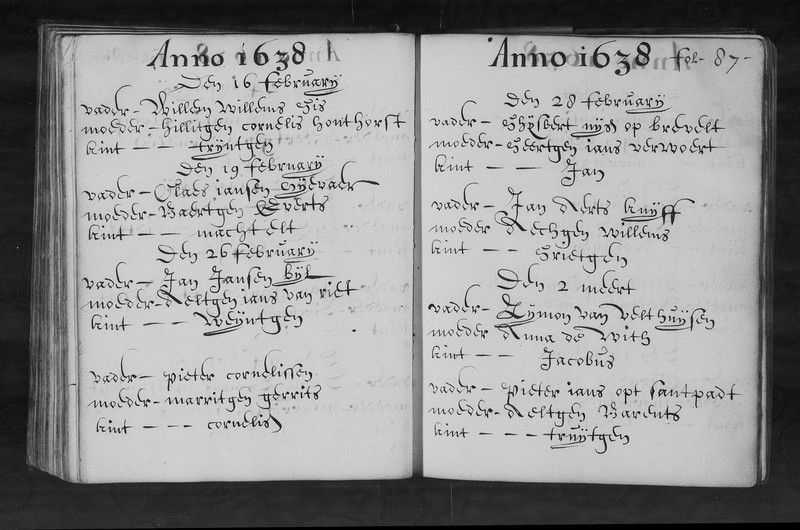 Anno 1638
Den 16 februarÿ
vader - Willem Willems
moeder - hillitgen cornelis honthorst
kint - - trÿntgen
Den 19 februarÿ
vader - Claes iansen
moeder - Baertgen Everts
kint - - machtelt
Den 26 februarÿ
vader - Jan Jansen bÿl
moeder - Aeltgen ians van riet
kint - - Weÿntgen
vader - pieter cornelissen
moeder - marritgen gerrits
kint - - - cornelis
Anno 1638 fol - 87 -
Den 28 februarÿ
vader - Ghÿsbert op brevelt
moeder - Geertgen ians verwoert
kint - - Jan
vader - Jan Aerts kuÿff
moeder Aechgen Willems
kint - - Grietgen
Den 2 meert
vader - Zÿmon van velthuÿsen
moeder Anna de With
kint - - Jacobus
vader - pieter ians opt santpadt
moeder - Aeltgen Barents
kint - - - truÿtgen